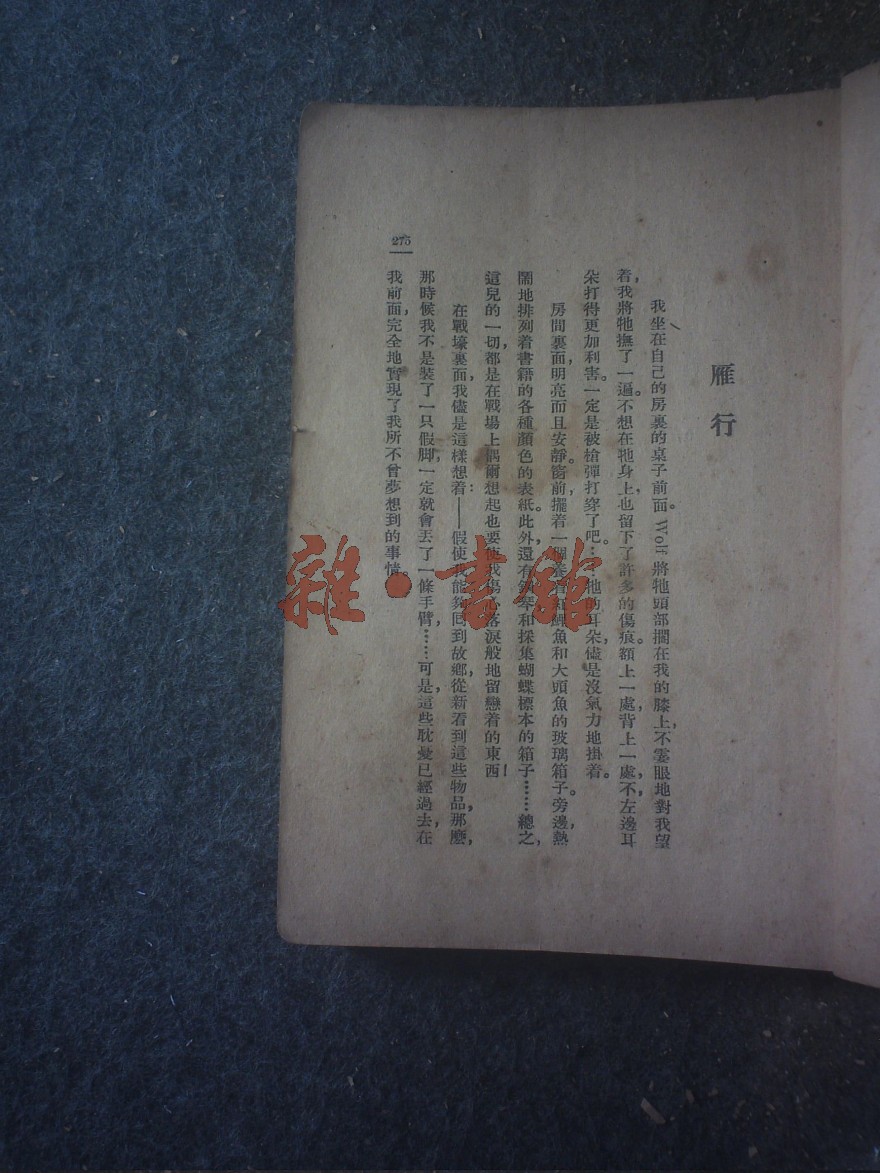 雁行
我坐在自己的房裏的桌子前面。Wolf 將牠頭部擱在我的膝上,不霎眼地對我望
着,我將牠撫了一遍。不想在牠身上也留下了許多的傷痕。額上一處,背上一處,不,左邊耳
朵打得更加利害。一定是被槍彈打穿了吧…牠的耳朵,儘是沒氣力地掛着。
房間裏面,明亮而且安靜。窗前,擺着一個養着紅鯉魚和大頭魚的玻璃箱子。旁邊,熱
鬧地排列着書籍的各種顏色的表紙。此外,還有鋼琴和採集蝴蝶標本的箱子……總之,
這兒的一切,都是在戰場上偶爾想起也要使我傷心落淚般地留戀着的東西!
在戰壕裏面,我儘是這樣想着:——假使我能夠囘到故鄉,從新看到這些物品,那麼,
那時候我不是裝了一只假脚,一定就會丟了一條手臂,……可是,這些耽憂已經過去,在
我前面,完全地實現了我所不曾夢想到的事情。
275
雜·書館